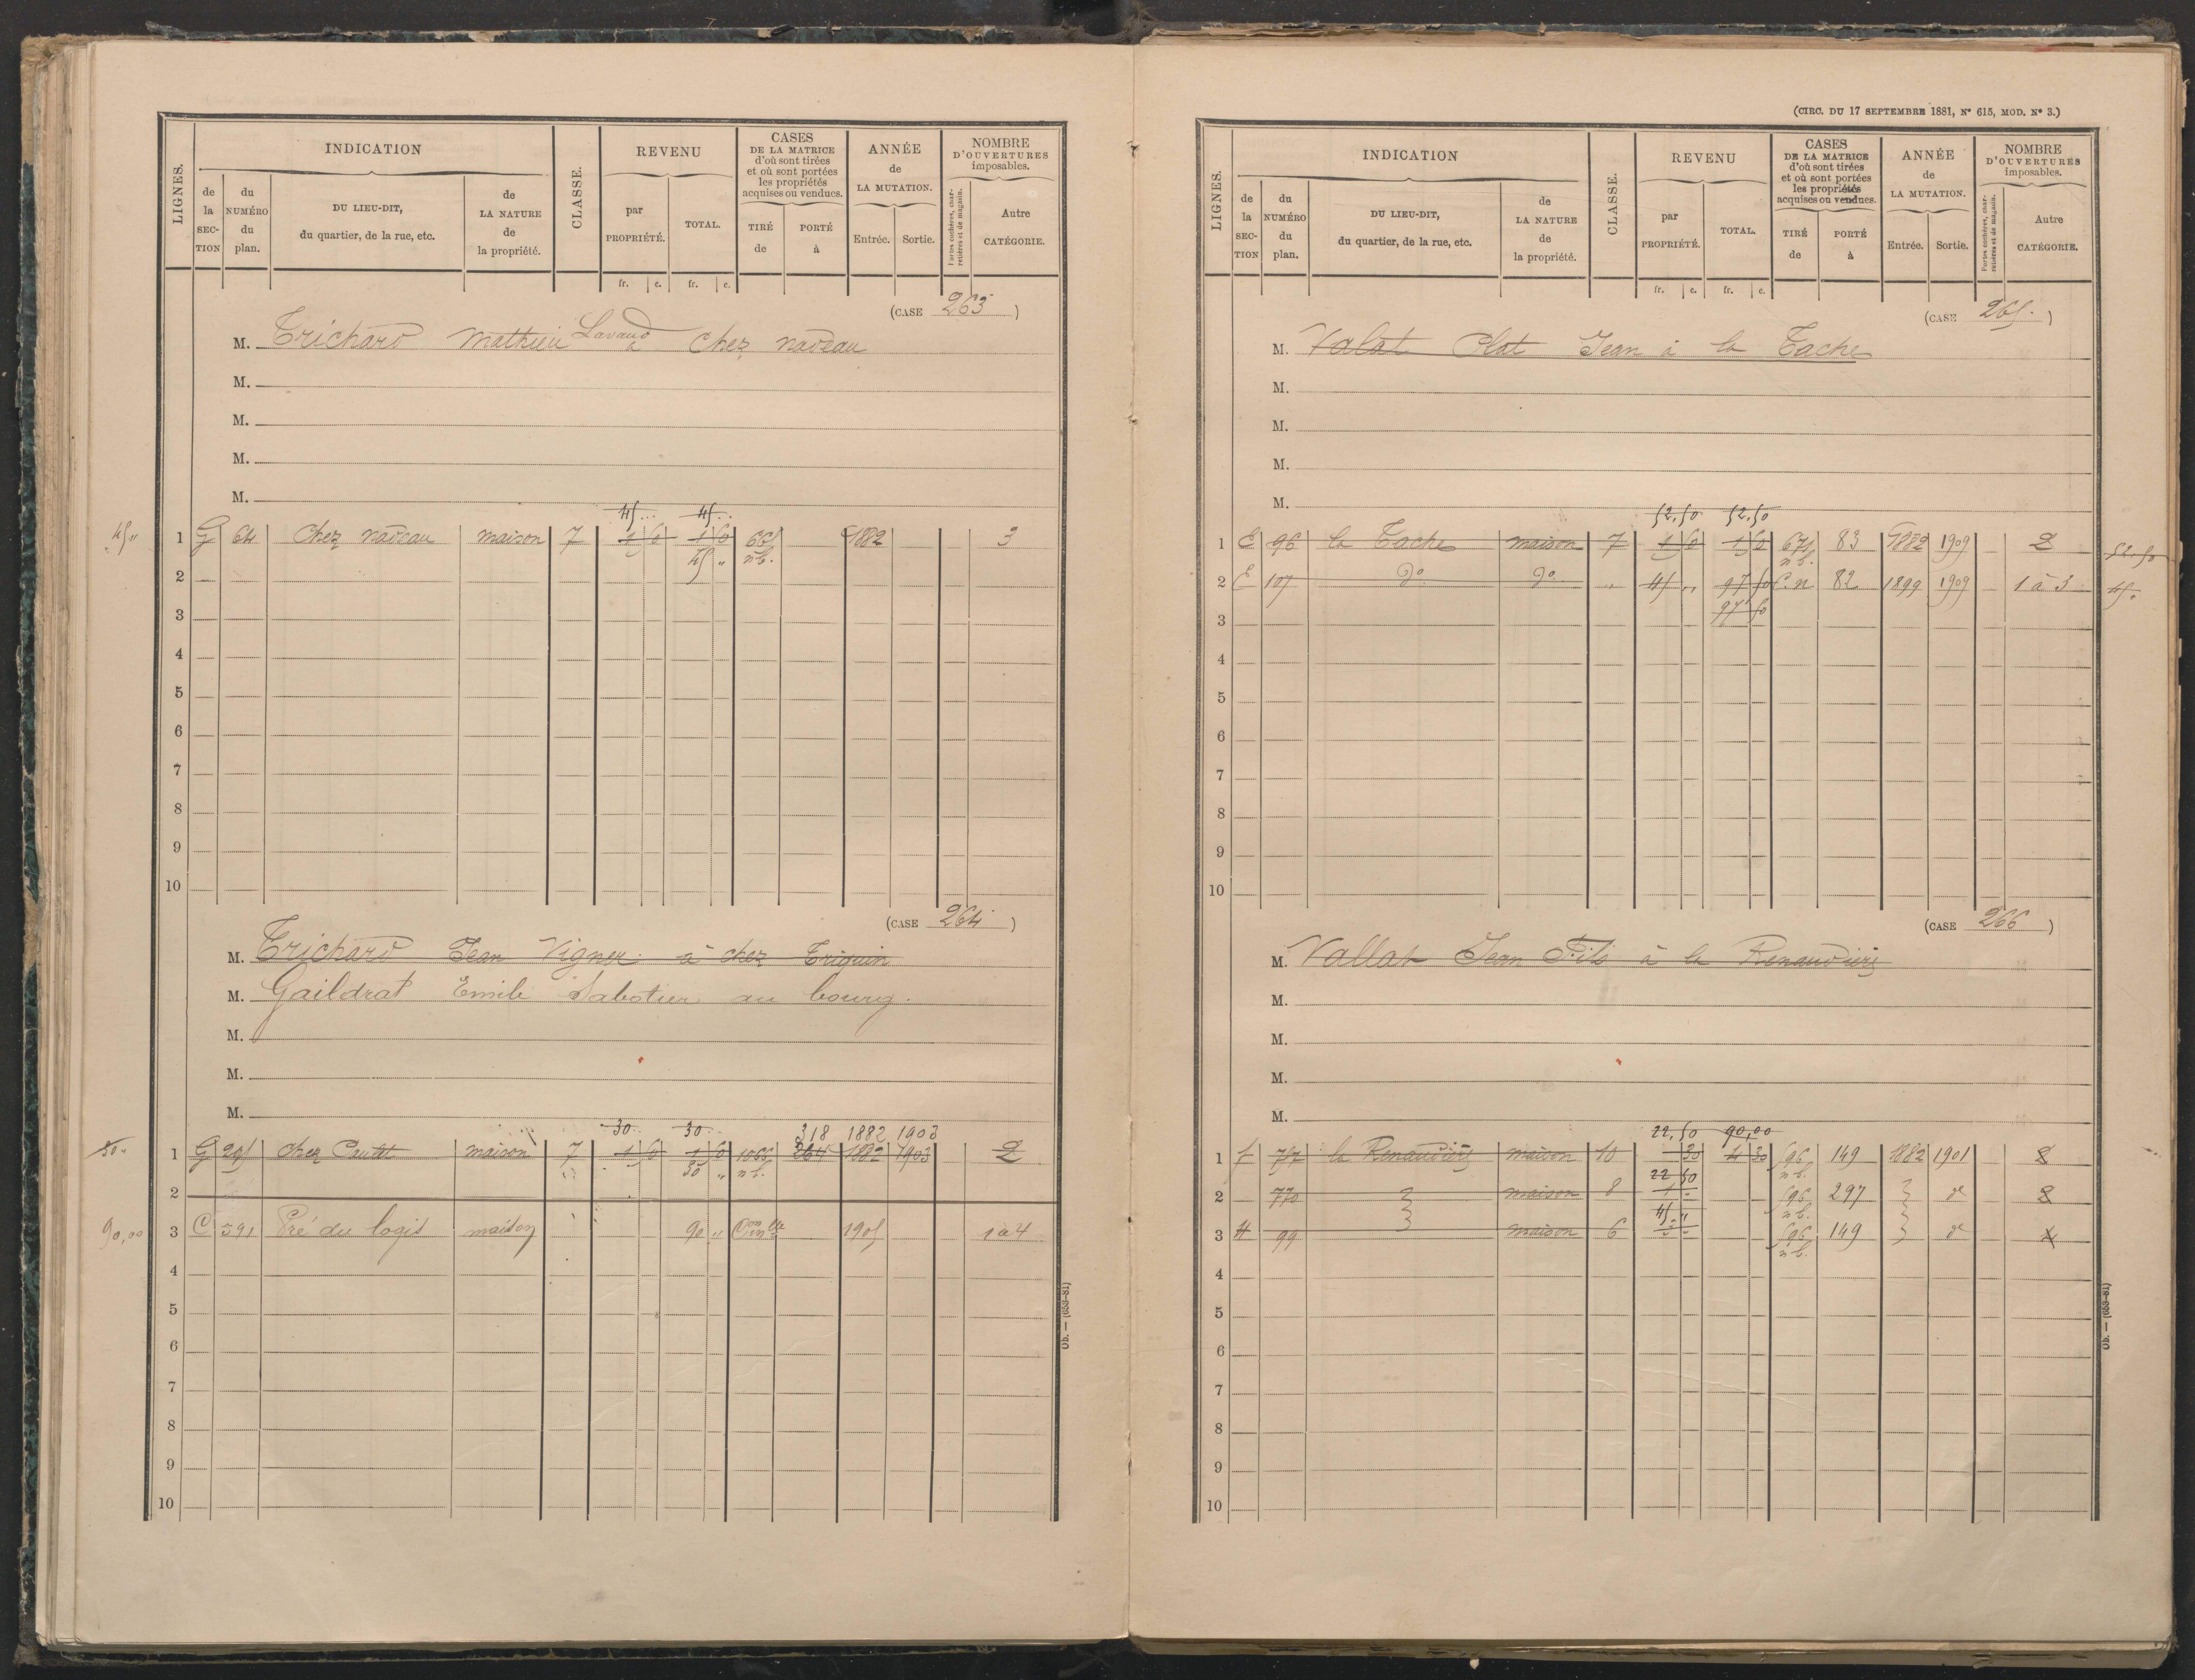 LIGNES.
INDICATION
de la SECTION
du NUMÉRO du plan.
DU LIEU-DIT, du quartier, de la rue, etc.
de LA NATURE de la propriété.
CLASSE.
REVENU
par PROPRIÉTÉ.
TOTAL.
CASES DE LA MATRICE d'où sont tirées et où sont portées les propriétés acquises ou vendues.
TIRÉ de
PORTÉ à
ANNÉE de LA MUTATION.
Entrée.
Sortie.
NOMBRE D'OUVERTURES imposables.
Portes cochères, charretières et de magasin.
Autre CATÉGORIE.
fr. c. fr. c.
(CASE 263)
M. Trichard Mathieu Lavaud à chez nadeau
M.
M.
M.
M.
45 .. 45 ..
45 " 1 G 64 chez nadeau maison 7 1 50 1 50 665 1882 3
45 " n.b.
2
3
4
5
6
7
8
9
10
(CASE 264)
M. Trichard Jean Vigner à chez Triquin
M. Gaildrat Emile Sabotier au bourg.
M.
M.
M.
30 .. 30 .. 318 1882 1903
30 " 1 G 291 chez maison 7 1 50 1 50 1066 264 1882 1903 2
30 " n.b.
2
90,00 3 C 591 Pré du logis maison 90 " Con nlle 1905 1 à 4
4
5
6
7
8
9
10
Ob. — (653-81)
(CIRC. DU 17 SEPTEMBRE 1881, N° 615, MOD. N° 3.)
LIGNES.
INDICATION
de la SECTION
du NUMÉRO du plan.
DU LIEU-DIT, du quartier, de la rue, etc.
de LA NATURE de la propriété.
CLASSE.
REVENU
par PROPRIÉTÉ.
TOTAL.
CASES DE LA MATRICE d'où sont tirées et où sont portées les propriétés acquises ou vendues.
TIRÉ de
PORTÉ à
ANNÉE de LA MUTATION.
Entrée.
Sortie.
NOMBRE D'OUVERTURES imposables.
Portes cochères, charretières et de magasin.
Autre CATÉGORIE.
fr. c. fr. c.
(CASE 265.)
M. Valat Plat Jean à la Tache
M.
M.
M.
M.
52,50 52,50
1 E 96 la Tache maison 7 1 50 1 50 671 83 1882 1909 2 52,50
n.b.
2 E 107 do do " 45 " 97 50 C.n 82 1899 1909 1 à 3 45 "
97 50
3
4
5
6
7
8
9
10
(CASE 266)
M. Vallat Jean Fils à la Renaudière
M.
M.
M.
M.
22,50 90,00
1 F 757 la Renaudière maison 10 30 4 30 596 149 1882 1901 2
22 50 n.b.
2 770 maison 8 1 " 596 297 d 2
45 " n.b.
3 H 99 maison 6 596 149 d 4
n.b.
4
5
6
7
8
9
10
Ob. — (653-81)